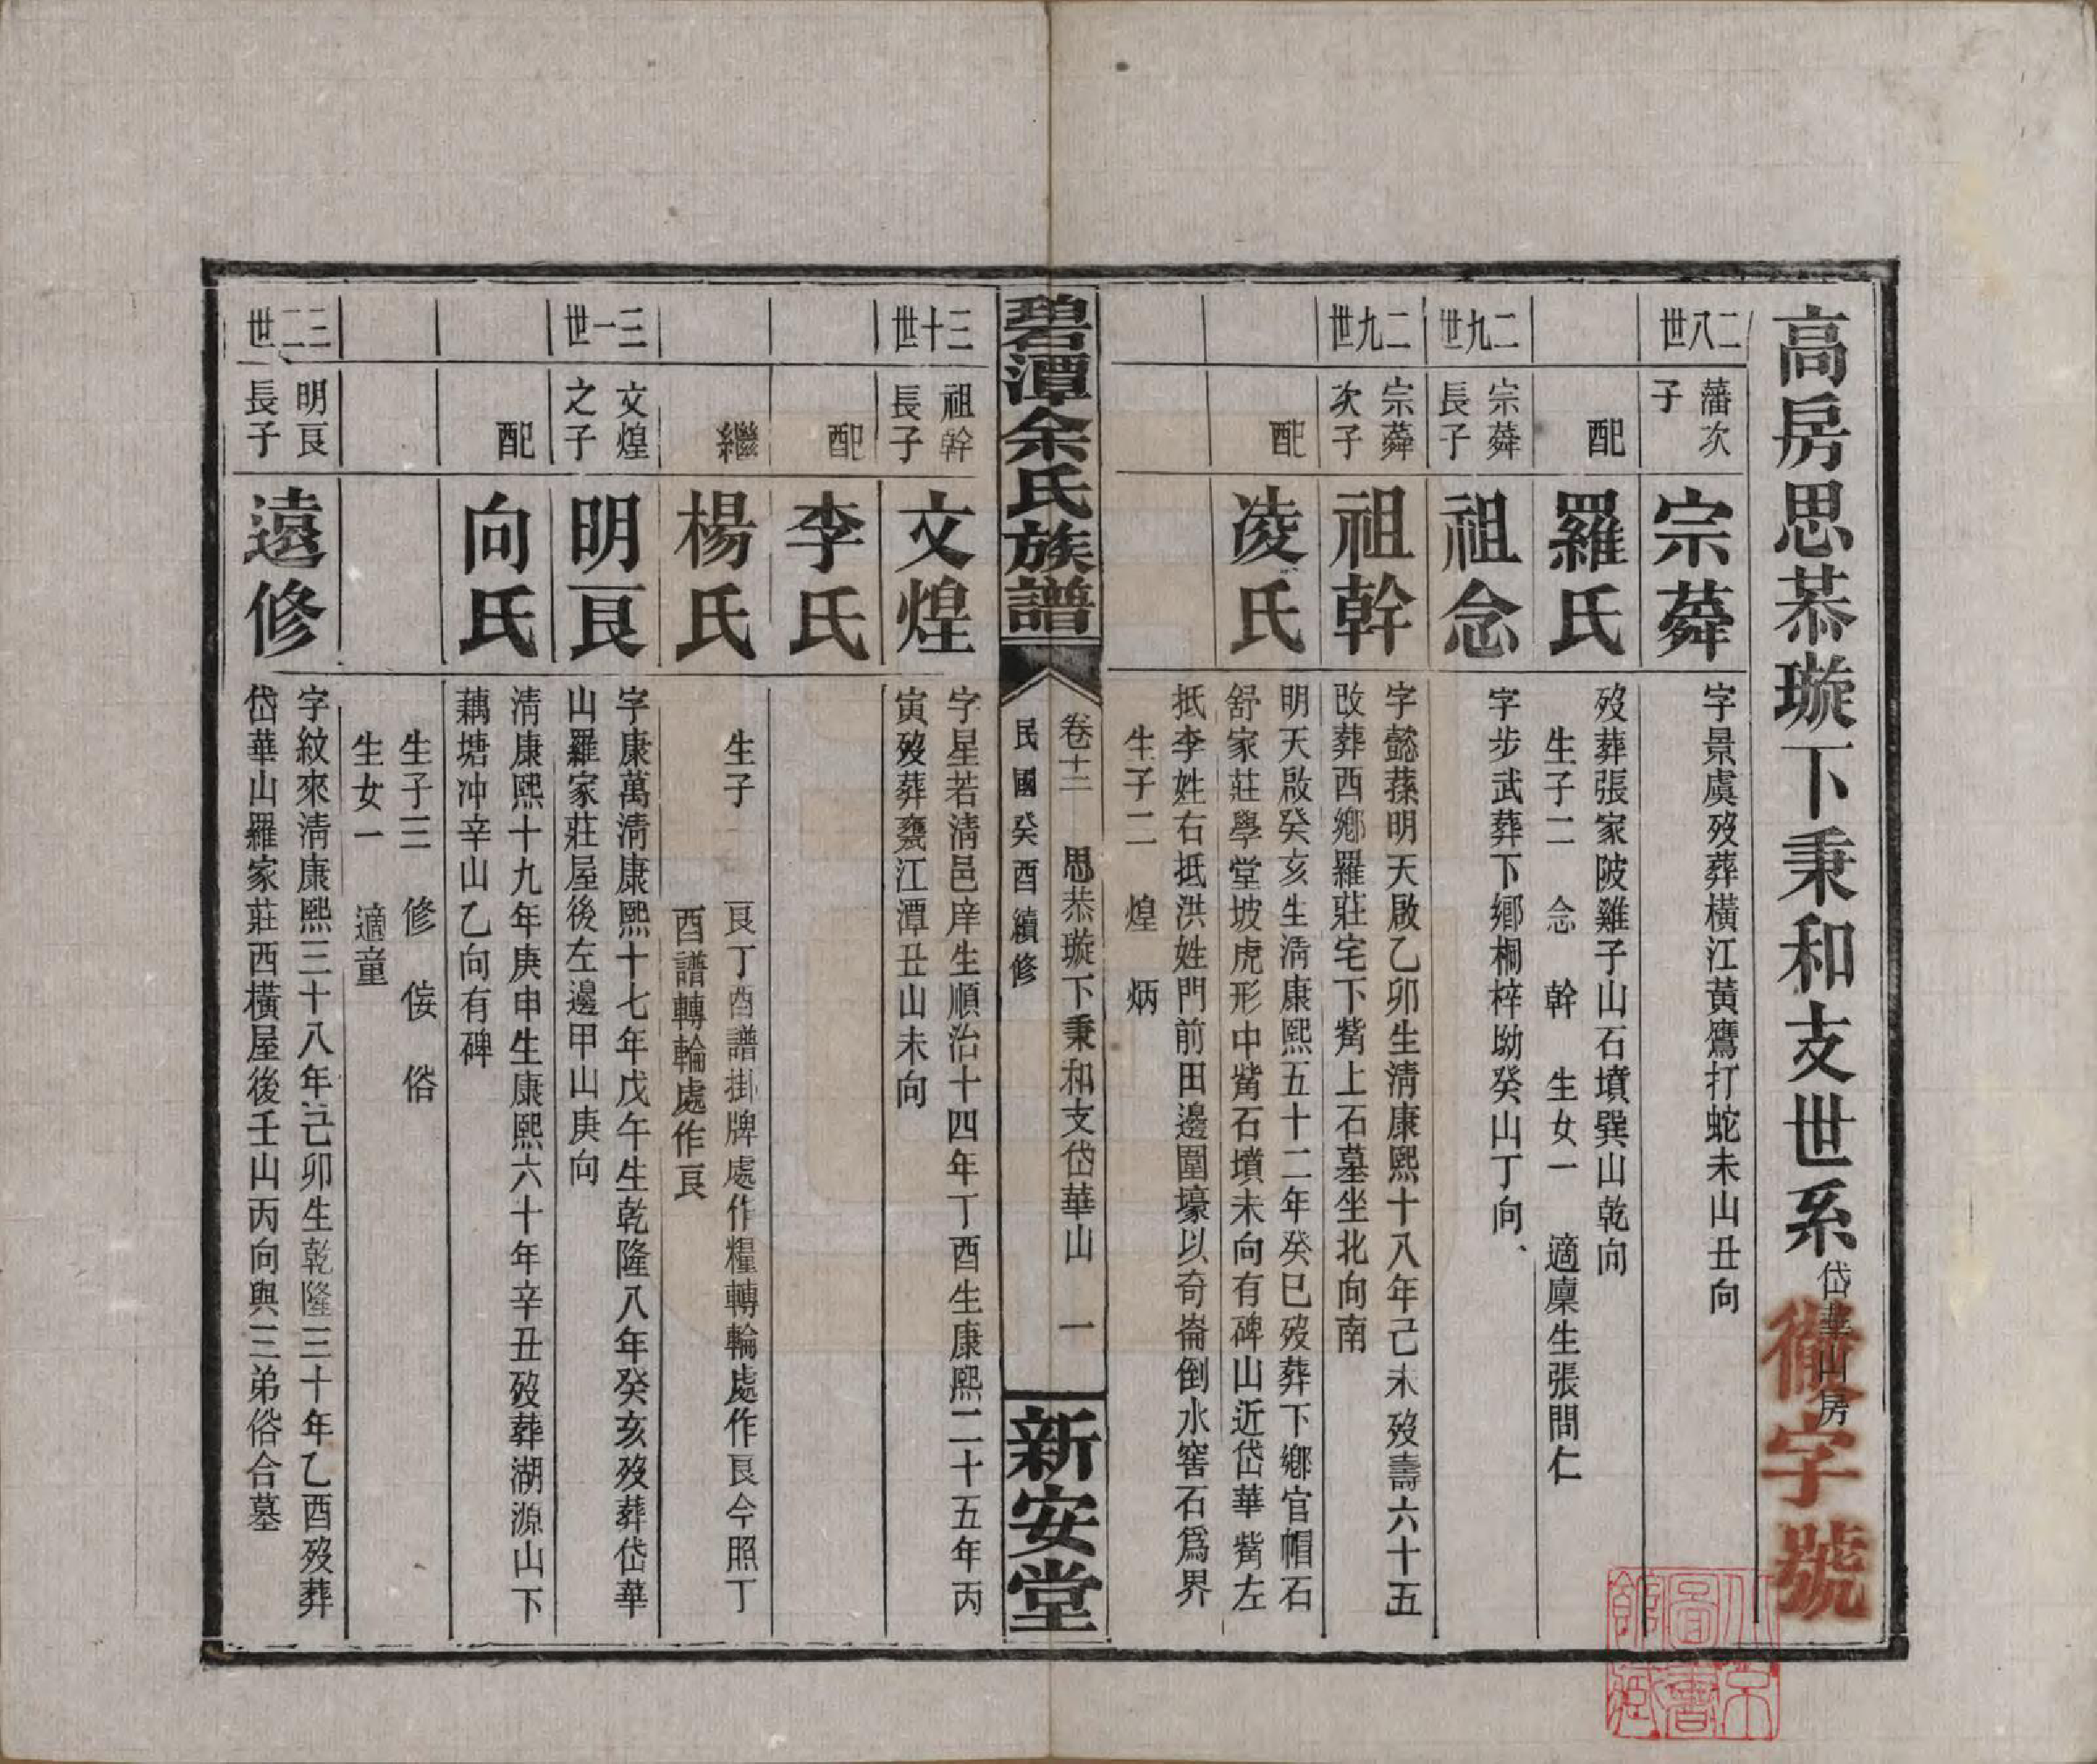 高房思恭璇下秉和支世系 岱華山房
徵字號
二八世 藩次子 宗蕣 字景虞歿葬橫江黃鷹打蛇未山丑向
配 羅氏 歿葬張家陂雞子山石墳巽山乾向
生子二 念 幹 生女一 適廩生張問仁
二九世 宗蕣長子 祖念 字步武葬下鄉桐梓坳癸山丁向
二九世 宗蕣次子 祖幹 字懿蓀明天啟乙卯生清康熙十八年己未歿壽六十五
改葬西鄉羅莊宅下觜上石墓坐北向南
配 凌氏 明天啟癸亥生清康熙五十二年癸巳歿葬下鄉官帽石
舒家莊學堂坡虎形中觜石墳未向有碑山近岱華觜左
抵李姓右抵洪姓門前田邊圍壕以奇崙倒水窖石爲界
生子二 煌 炳
碧潭余氏族譜
卷十二 思恭璇下秉和支岱華山 一
民國癸酉續修
新安堂
三十世 祖幹長子 文煌 字星若清邑庠生順治十四年丁酉生康熙二十五年丙
寅歿葬甕江潭丑山未向
配 李氏
繼 楊氏 生子 艮丁酉譜掛牌處作糧轉輪處作艮今照丁
酉譜轉輪處作艮
三一世 文煌之子 明艮 字康萬清康熙十七年戊午生乾隆八年癸亥歿葬岱華
山羅家莊屋後左邊甲山庚向
配 向氏 清康熙十九年庚申生康熙六十年辛丑歿葬湖源山下
藕塘冲辛山乙向有碑
生子三 修 俊 俗
生女一 適童
三二世 明艮長子 遠修 字紋來清康熙三十八年己卯生乾隆三十年乙酉歿葬
岱華山羅家莊西橫屋後壬山丙向與三弟俗合墓
北京圖書館藏